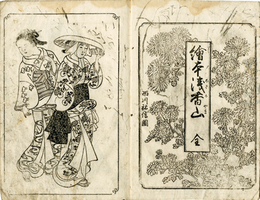 繪本淺香山 全
西川祐信圖